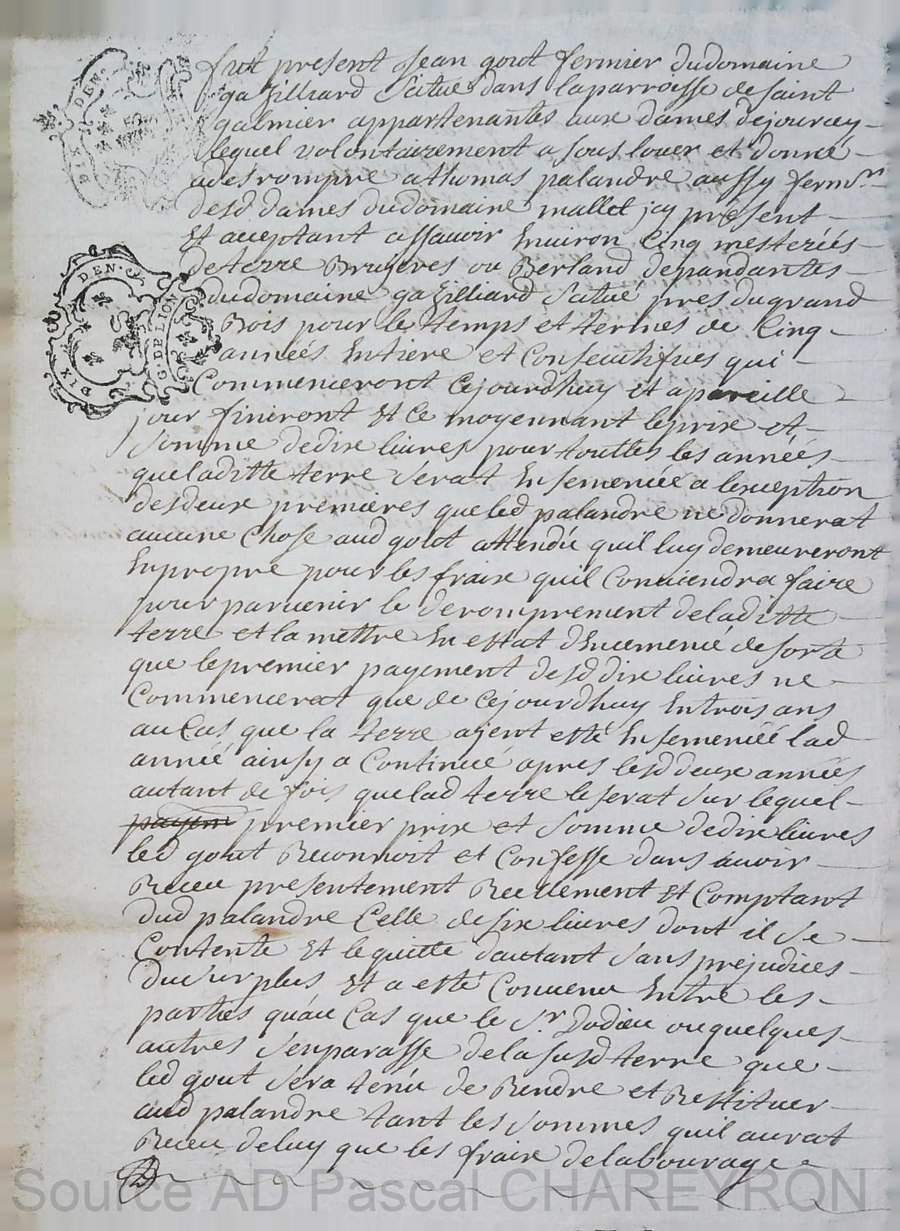 DIX DEN.
DIX DEN. G. DE LION
fut present Jean gout fermier dudomaine
gazilliard Scitué dans laparroisse desaint
galmier appartenantes aux dames dejourcey
lequel volontairement a sous louer et donné
adesrompre athomas palandre aussy fermr
desd dames dudomaine mallet jcy présent
Et aceptant assauoir Enuiron Cinq mesteréés
deterre Bruyeres ou Berland dépandantes
dudomaine gazilliard Scitué pres dugrand
Bois pour le temps et termes de Cinq
années Entiere et Consecutifues qui
Commenceront Cejourdhuy Et apareille
jour finiront Et Ce moyennant leprix et
Somme dedix liures pour touttes les années
queladitte terre Serat Ensemencé a lexception
desdeux premieres que led palandre ne donnerat
aucune Chose aud gout attendu quil luy demeureront
Enpropre pour les fraix quil Conuiendra faire
pour paruenir le derompremenT deladitte
terre et la mettre En estat dEncemencé desorte
que lepremier payement desd dix liures ne
Commencerat que de Cejourdhuy Entrois ans
au Cas que la terre ayent esté Ensemencéé lad
année ainsy a Continué apres lesd deux années
autant de fois quelad terre leserat Sur lequel
payem premier prix et Somme dedix liures
led gout Reconnoit et Confesse dans auoir
Receu présentement Reellement Et Comptant
dud palandre Celle desix liures dont il Se
Contente Et lequitte dautant Sans préjudices
duSurplus Et a esté Conuenu Entre les
parties quau Cas que le Sr. ou quelques
autres Senparasse delasusd terre que
led gout Sera tenu de Rendre et Restituer
aud palandre tant les Sommes quil aurat
Receu deluy que les fraix delabourage
Source AD Pascal CHAREYRON